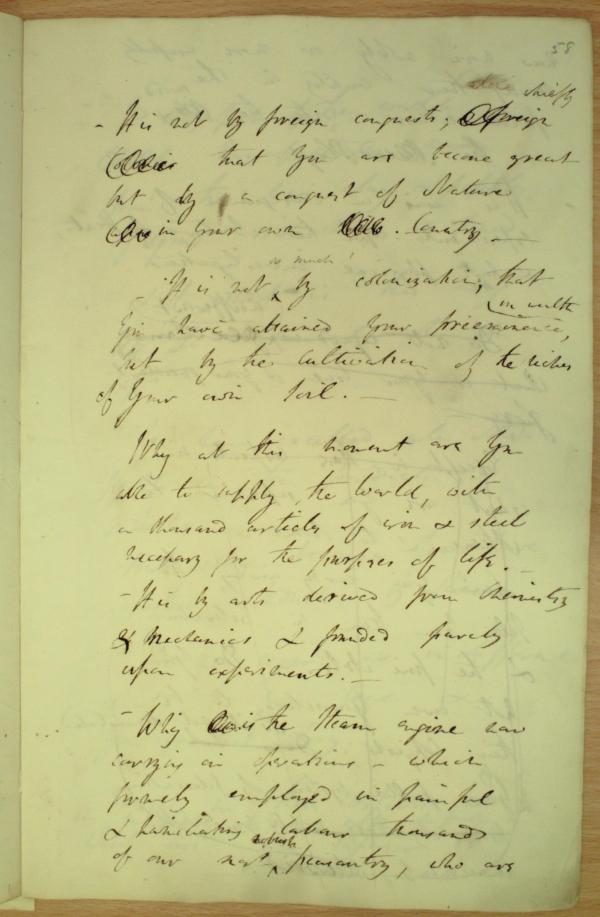 58
chiefly
- It is not by foreign conquests; foreign
that you are become great
but by a conquest of Nature
in your own Country. _
so much
- It is not by colonization, that
in wealth
You have attained your preeminence,
but by the cultivation of the riches
of Your own soil. _
Why at this moment are You
able to supply the World, with
a thousand articles of iron & steel
necessary for the purposes of life. _
- It is by arts derived from Chemistry
& Mechanics & founded purely
upon experiments. _
- Why is the steam engine now
carrying on operations - which
formerly employed in painful
& humiliating labour thousands
robust
of our peasantry, who are